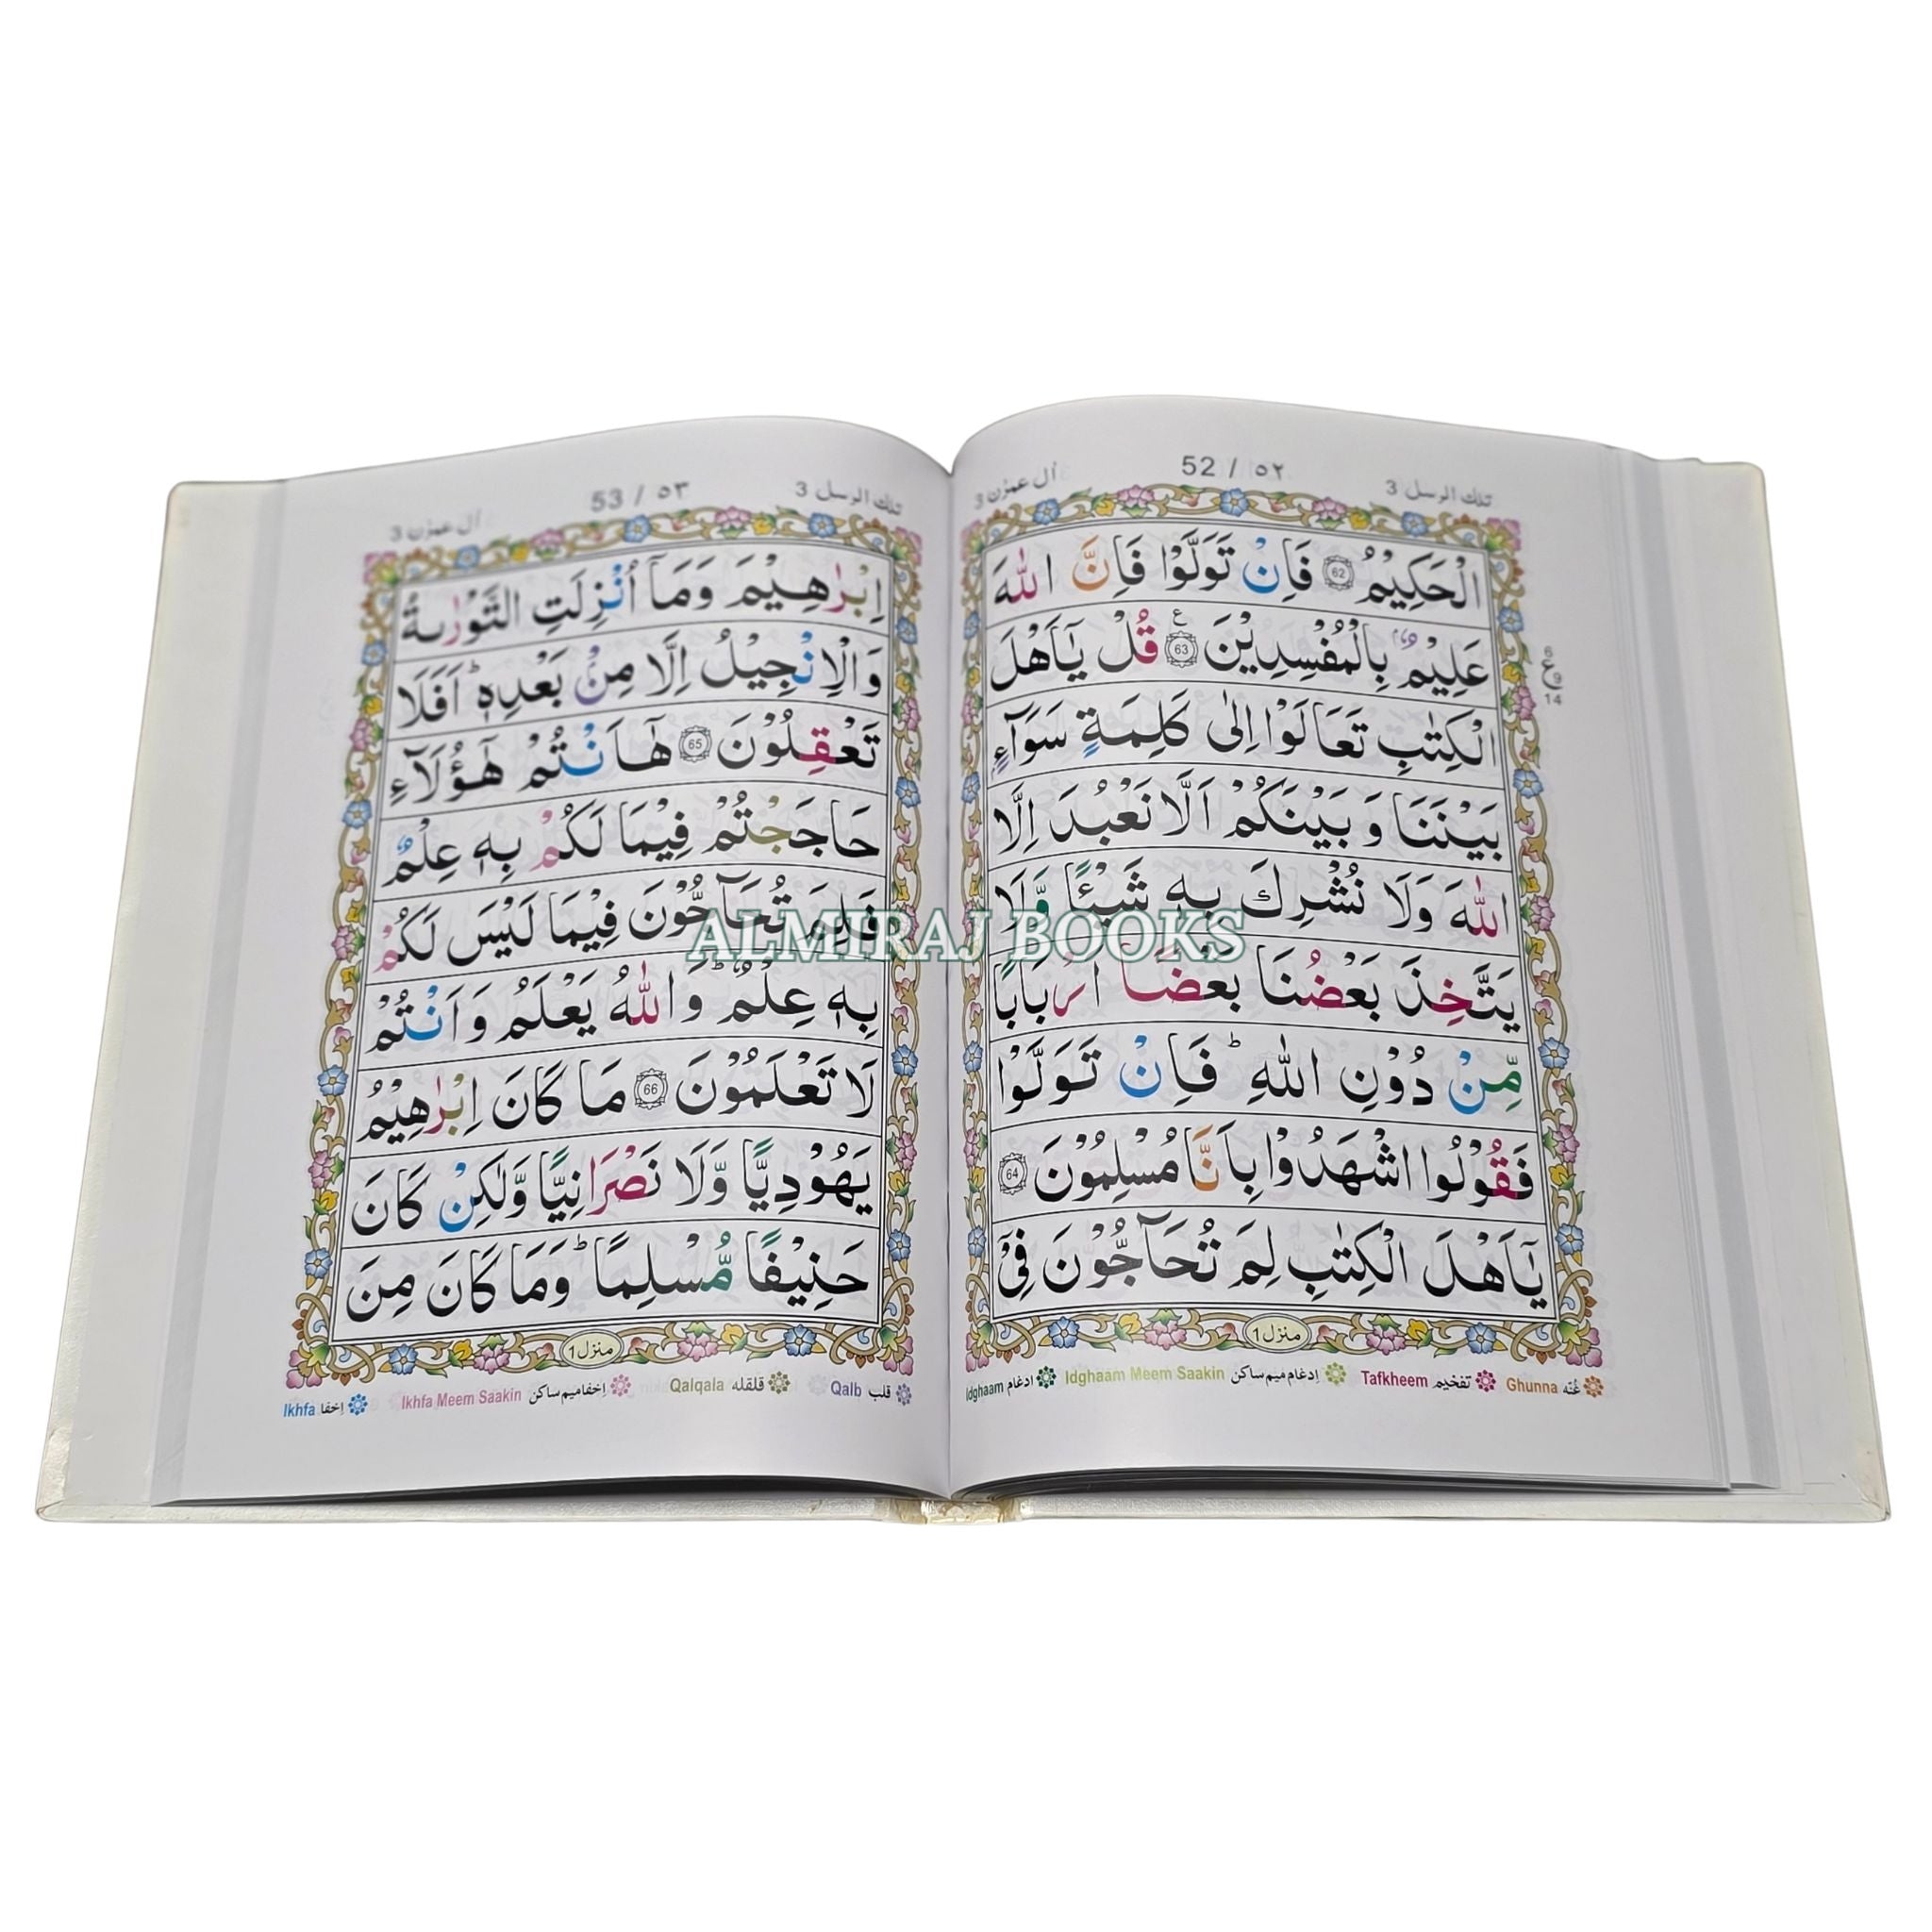 تلك الرسل 3
52 / ٥٢
اٰل عمرٰن 3
الْحَكِيْمُ 62 فَاِنْ تَوَلَّوْا فَاِنَّ اللّٰهَ
عَلِيْمٌۢ بِالْمُفْسِدِيْنَ 63 ع قُلْ يٰۤاَهْلَ
الْكِتٰبِ تَعَالَوْا اِلٰى كَلِمَةٍ سَوَآءٍۭ
بَيْنَنَا وَ بَيْنَكُمْ اَلَّا نَعْبُدَ اِلَّا
اللّٰهَ وَلَا نُشْرِكَ بِهٖ شَيْـًٔا وَّلَا
يَتَّخِذَ بَعْضُنَا بَعْضًا اَرْبَابًا
مِّنْ دُوْنِ اللّٰهِ ؕ فَاِنْ تَوَلَّوْا
فَقُوْلُوا اشْهَدُوْا بِاَنَّا مُسْلِمُوْنَ 64
يٰۤاَهْلَ الْكِتٰبِ لِمَ تُحَآجُّوْنَ فِىْۤ
6
ع 9
14
منزل 1
غُنّه Ghunna تفخيم Tafkheem إدغام ميم ساكن Idghaam Meem Saakin ادغام Idghaam
تلك الرسل 3
53 / ٥٣
اٰل عمرٰن 3
اِبْرٰهِيْمَ وَمَاۤ اُنْزِلَتِ التَّوْرٰىةُ
وَالْاِنْجِيْلُ اِلَّا مِنْۢ بَعْدِهٖ ؕ اَفَلَا
تَعْقِلُوْنَ 65 هٰۤاَنْتُمْ هٰۤؤُلَآءِ
حَاجَجْتُمْ فِيْمَا لَكُمْ بِهٖ عِلْمٌ
فَلِمَ تُحَآجُّوْنَ فِيْمَا لَيْسَ لَكُمْ
بِهٖ عِلْمٌ ؕ وَاللّٰهُ يَعْلَمُ وَاَنْتُمْ
لَا تَعْلَمُوْنَ 66 مَا كَانَ اِبْرٰهِيْمُ
يَهُوْدِيًّا وَّلَا نَصْرَانِيًّا وَّلٰكِنْ كَانَ
حَنِيْفًا مُّسْلِمًا ؕ وَمَا كَانَ مِنَ
منزل 1
قلب Qalb قلقله Qalqala إخفا ميم ساكن Ikhfa Meem Saakin إخفا Ikhfa
ALMIRAJ BOOKS